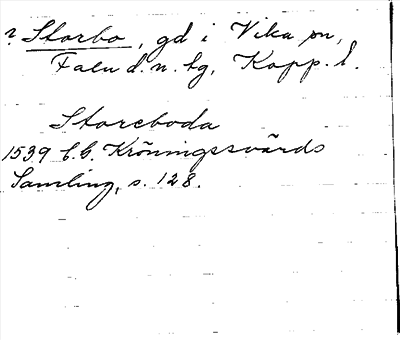 ? Storbo, gd i Vika sn,
Falu d. n. tg, Kopp. l.
Storeboda
1539 C.G. Kröningssvärds
Samling, s. 128.